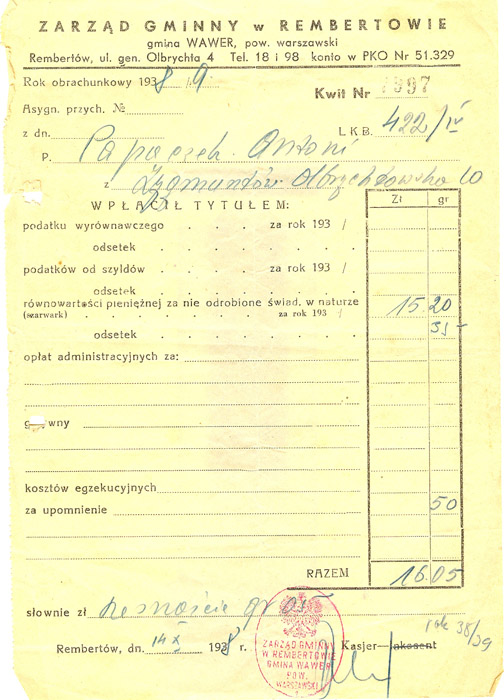 ZARZĄD GMINNY w REMBERTOWIE
gmina WAWER, pow. warszawski
Rembertów, ul. gen. Olbrychta 4 Tel. 18 i 98 konto w PKO Nr 51.329
Rok obrachunkowy 1938/9
Kwit Nr
Asygn. przych. №
z dn. L.K.B. 422/IV
P. Papaczek Antoni
z Zygmuntów 10
WPŁACIŁ TYTUŁEM: Zł gr
podatku wyrównawczego . . . . za rok 193 /
odsetek . . . .
podatków od szyldów . . . . za rok 193 /
odsetek . . . .
równowartości pieniężnej za nie odrobione świad. w naturze 15 20
(szarwark) . . . . . . . za rok 193 /
odsetek . . . . 35
opłat administracyjnych za:
g wny
kosztów egzekucyjnych
za upomnienie 50
RAZEM 16.05
słownie zł szesnaście gr 05
Rembertów, dn. 14 X 1938 r. Kasjer—inkasent
rok 38/39
ZARZĄD GMINNY
W REMBERTOWIE
GMINA WAWER
POW.
WARSZAWSKI